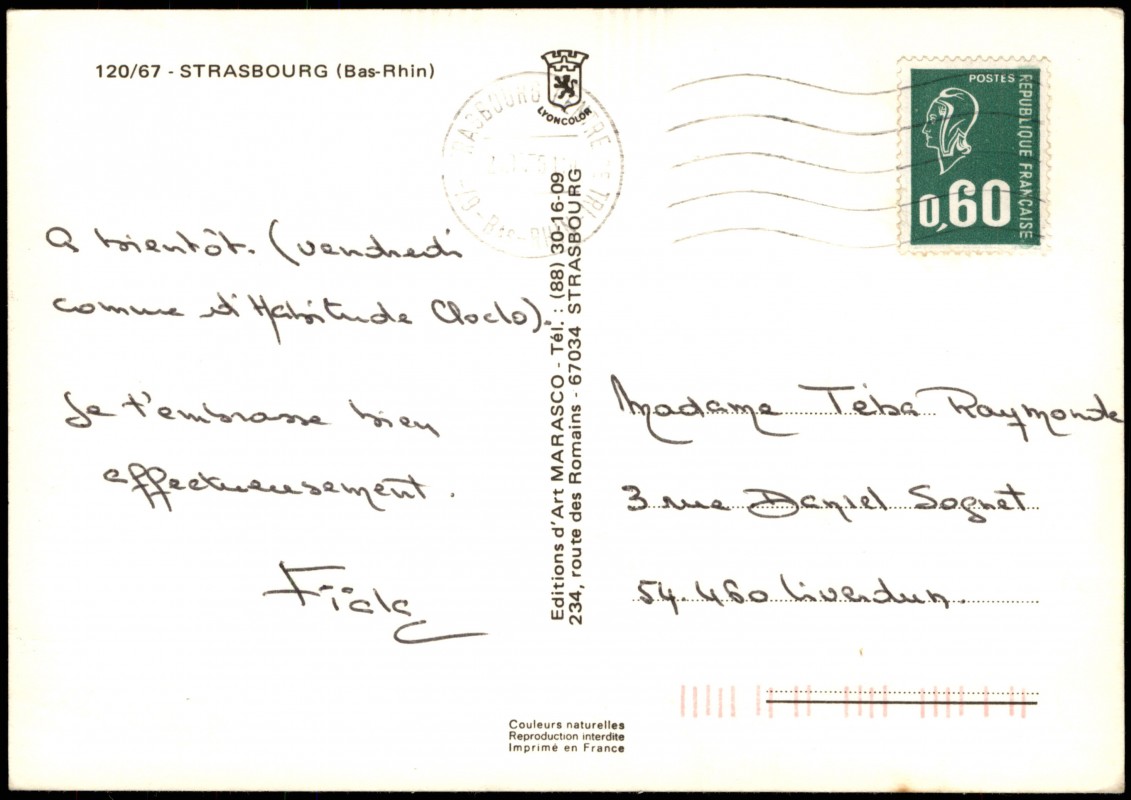 120/67 - STRASBOURG (Bas-Rhin)
LYONCOLOR
POSTES
REPUBLIQUE FRANÇAISE
0,60
A bientôt. (vendredi
comme d'Habitude Cloclo).
Je t'embrasse bien
affectueusement.
Editions d'Art MARASCO - Tél. : (88) 30-16-09
234, route des Romains - 67034 STRASBOURG
Madame Téba Raymonde
3 rue Daniel Sognet
54.460 Liverdun.
Couleurs naturelles
Reproduction interdite
Imprimé en France